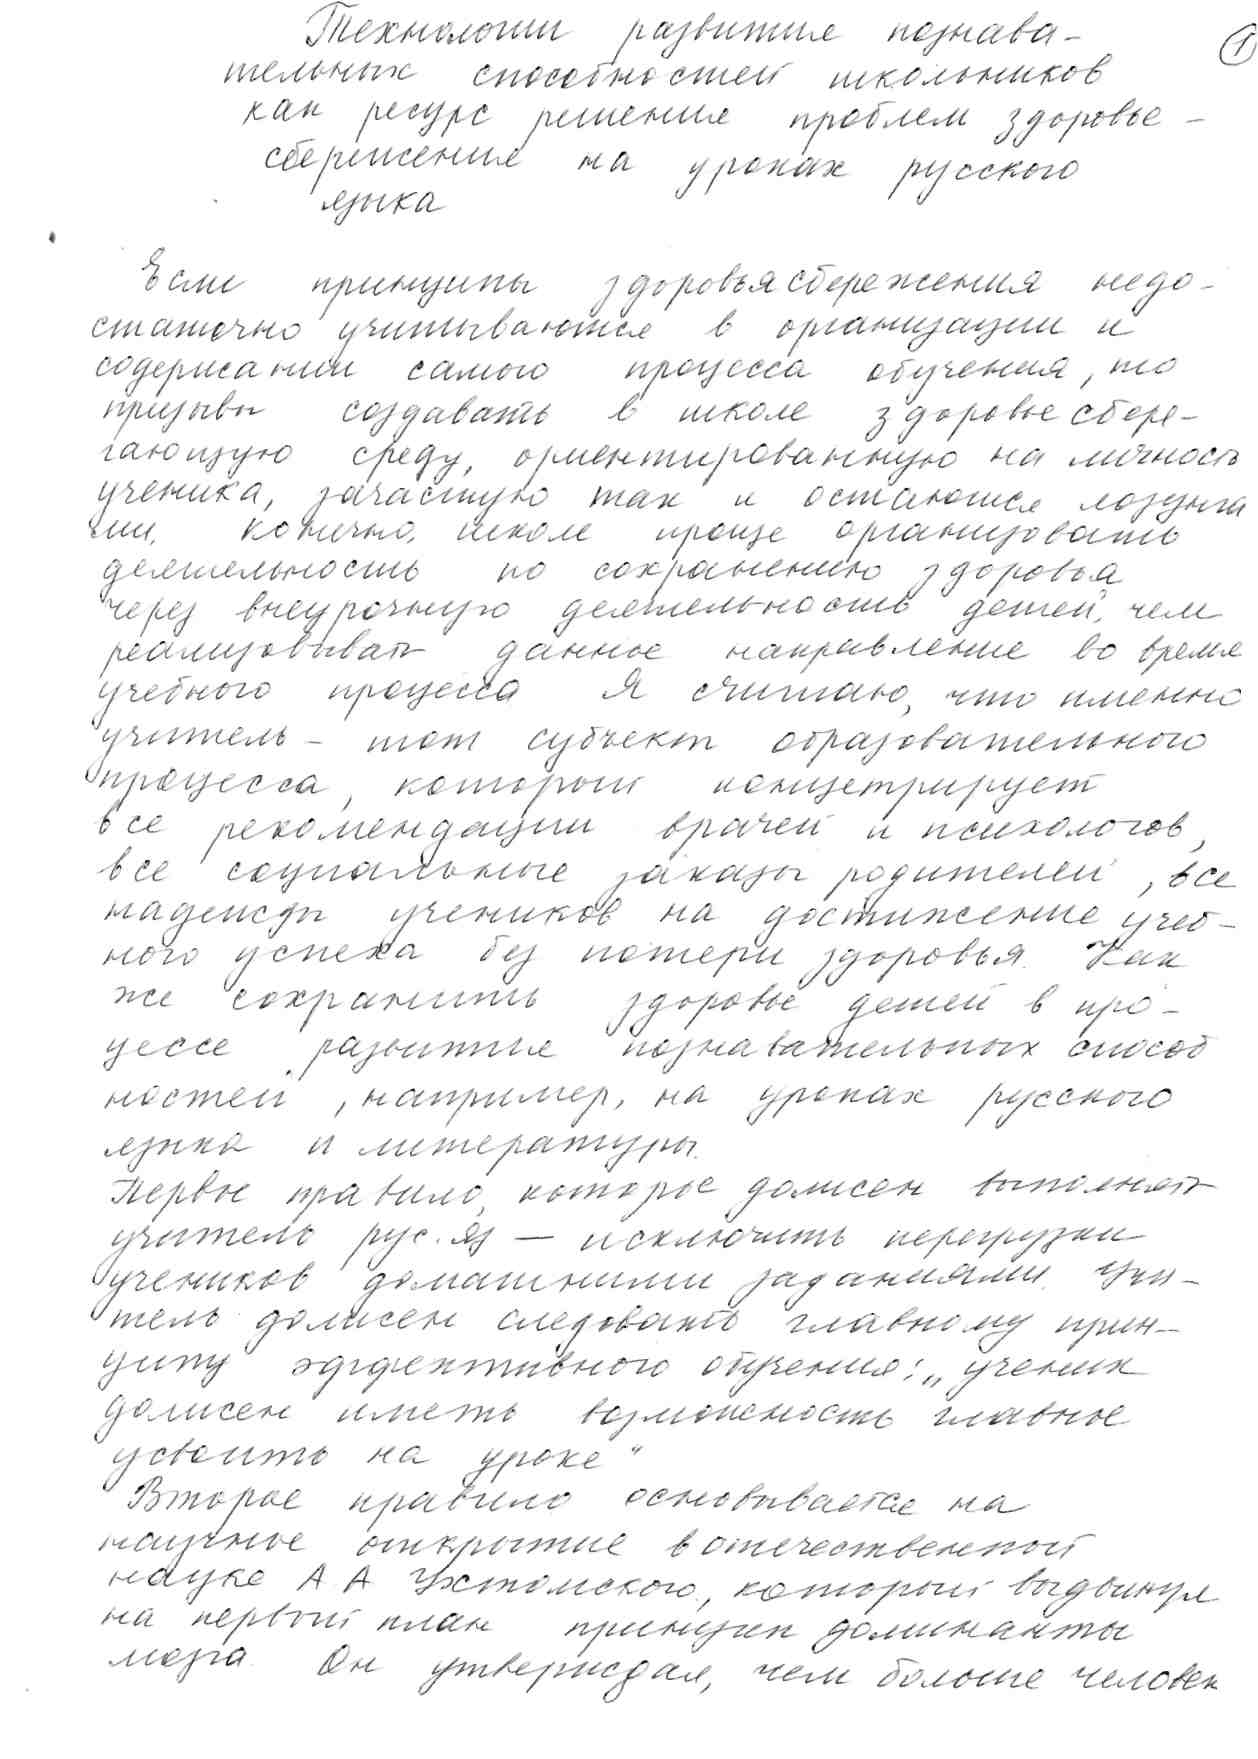 Технологии развития познава-
①
тельных способностей школьников
как ресурс решения проблем здоровье-
сбережения на уроках русского
языка
Если принципы здоровьясбережения недо-
статочно учитываются в организации и
содержании самого процесса обучения, то
призывы создавать в школе здоровьесбере-
гающую среду, ориентированную на личность
ученика, зачастую так и остаются лозунга
ми. Конечно, школе проще организовать
деятельность по сохранению здоровья
через внеурочную деятельность детей, чем
реализовывать данное направление во время
учебного процесса Я считаю, что именно
учитель – тот субъект образовательного
процесса, который концетрирует
все рекомендации врачей и психологов,
все социальные заказы родителей, все
надежды учеников на достижение учеб-
ного успеха без потери здоровья. Как
же сохранить здоровье детей в про-
цессе развития познавательных способ
ностей, например, на уроках русского
языка и литературы.
Первое правило, которое должен выполнять
учитель рус. яз – исключить перегрузки
учеников домашними заданиями. Учи-
тель должен следовать главному прин-
ципу эффективного обучения: „ученик
должен иметь возможность главное
усвоить на уроке"
Второе правило основывается на
научное открытие в отечественной
науке А А Ухтомского, который выдвинул
на первый план принцип доминанты
мозга. Он утверждал, чем больше человек